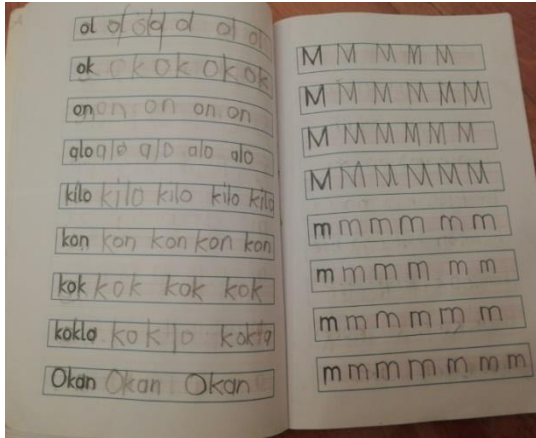 ol ol ol ol ol ol
ok ok ok ok ok
on on on on on
alo alo alo alo alo
kilo kilo kilo kilo kilo
kon kon kon kon kon
kok kok kok kok
kokla kokla kokla
Okan Okan Okan
M M M M M
M M M M M M
M M M M M M
M M M M M M
m m m m m m
m m m m m m
m m m m m m
m m m m m m m